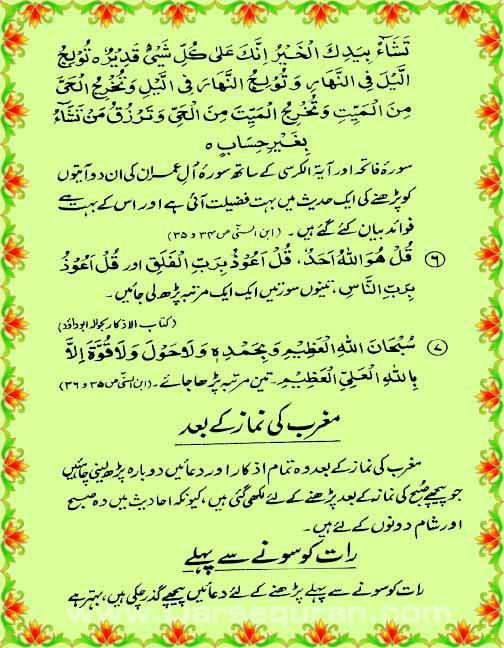 تَشَآءُ بِيَدِكَ الْخَيْرُ اِنَّكَ عَلٰى كُلِّ شَيْءٍ قَدِيْرٌ ه تُوْلِجُ
الَّيْلَ فِى النَّهَارِ وَ تُوْلِجُ النَّهَارَ فِى الَّيْلِ وَ تُخْرِجُ الْحَيَّ
مِنَ الْمَيِّتِ وَ تُخْرِجُ الْمَيِّتَ مِنَ الْحَيِّ وَ تَرْزُقُ مَنْ تَشَآءُ
بِغَيْرِ حِسَابٍ ه
سورۂ فاتحہ اور آیۃ الکرسی کے ساتھ سورۂ آل عمران کی ان دو آیتوں
کو پڑھنے کی ایک حدیث میں بہت فضیلت آئی ہے اور اس کے بہت سے
فوائد بیان کئے گئے ہیں۔ (ابن السنی ص ۳۴ و ۳۵)
۶ قُلْ هُوَ اللهُ اَحَدٌ، قُلْ اَعُوْذُ بِرَبِّ الْفَلَقِ اور قُلْ اَعُوْذُ
بِرَبِّ النَّاسِ، تینوں سورتیں ایک ایک مرتبہ پڑھ لی جائیں۔
(کتاب الاذکار بحوالہ ابوداؤد)
۷ سُبْحَانَ اللهِ الْعَظِيْمِ وَ بِحَمْدِهٖ وَلَا حَوْلَ وَلَا قُوَّةَ اِلَّا
بِاللهِ الْعَلِيِّ الْعَظِيْمِ۔ تین مرتبہ پڑھا جائے۔ (ابن السنی ص ۳۵ و ۳۶)
مغرب کی نماز کے بعد
مغرب کی نماز کے بعد وہ تمام اذکار اور دعائیں دوبارہ پڑھ لینی چاہئیں
جو پیچھے صبح کی نماز کے بعد پڑھنے کے لئے لکھی گئی ہیں، کیونکہ احادیث میں وہ صبح
اور شام دونوں کے لئے ہیں۔
رات کو سونے سے پہلے
رات کو سونے سے پہلے پڑھنے کے لئے دعائیں پیچھے گذر چکی ہیں، بہتر ہے